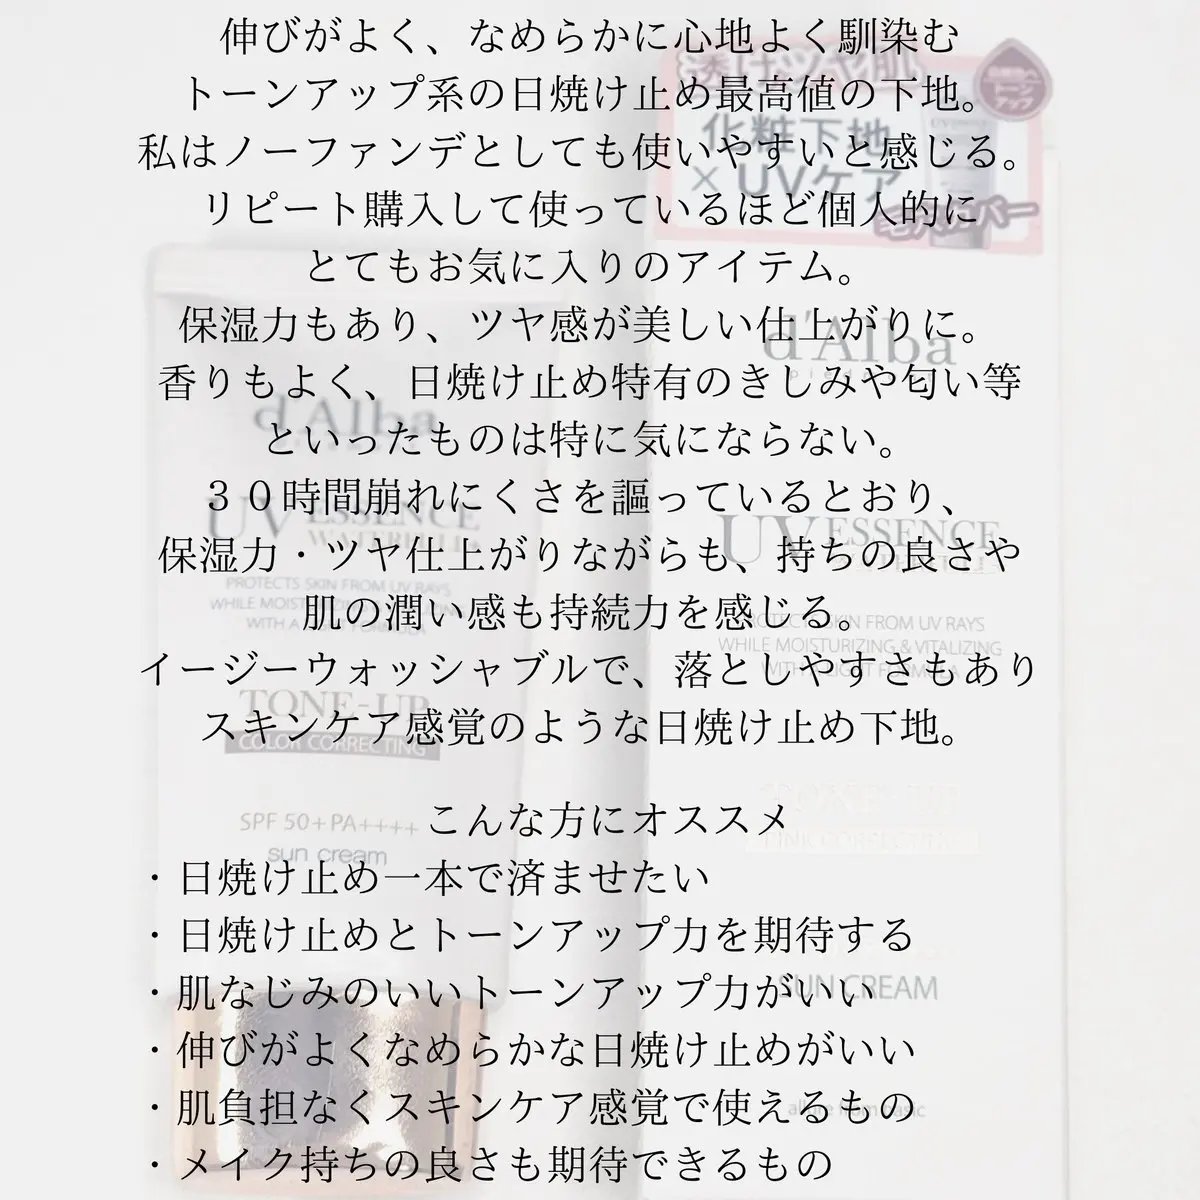 伸びがよく、なめらかに心地よく馴染む
トーンアップ系の日焼け止め最高値の下地。
私はノーファンデとしても使いやすいと感じる。
リピート購入して使っているほど個人的に
とてもお気に入りのアイテム。
保湿力もあり、ツヤ感が美しい仕上がりに。
香りもよく、日焼け止め特有のきしみや匂い等
といったものは特に気にならない。
３０時間崩れにくさを謳っているとおり、
保湿力・ツヤ仕上がりながらも、持ちの良さや
肌の潤い感も持続力を感じる。
イージーウォッシャブルで、落としやすさもあり
スキンケア感覚のような日焼け止め下地。
こんな方にオススメ
・日焼け止め一本で済ませたい
・日焼け止めとトーンアップ力を期待する
・肌なじみのいいトーンアップ力がいい
・伸びがよくなめらかな日焼け止めがいい
・肌負担なくスキンケア感覚で使えるもの
・メイク持ちの良さも期待できるもの
透けツヤ肌
化粧下地
×UVケア
毛穴カバー
d'Alba
UV ESSENCE
PROTECTS SKIN FROM UV RAYS
WHILE MOISTURIZING & VITALIZING
SUN CREAM
d'Alba
UV ESSENCE
PROTECTS SKIN FROM UV RAYS
TONE-UP
COLOR CORRECTING
SPF 50+ PA++++
sun cream